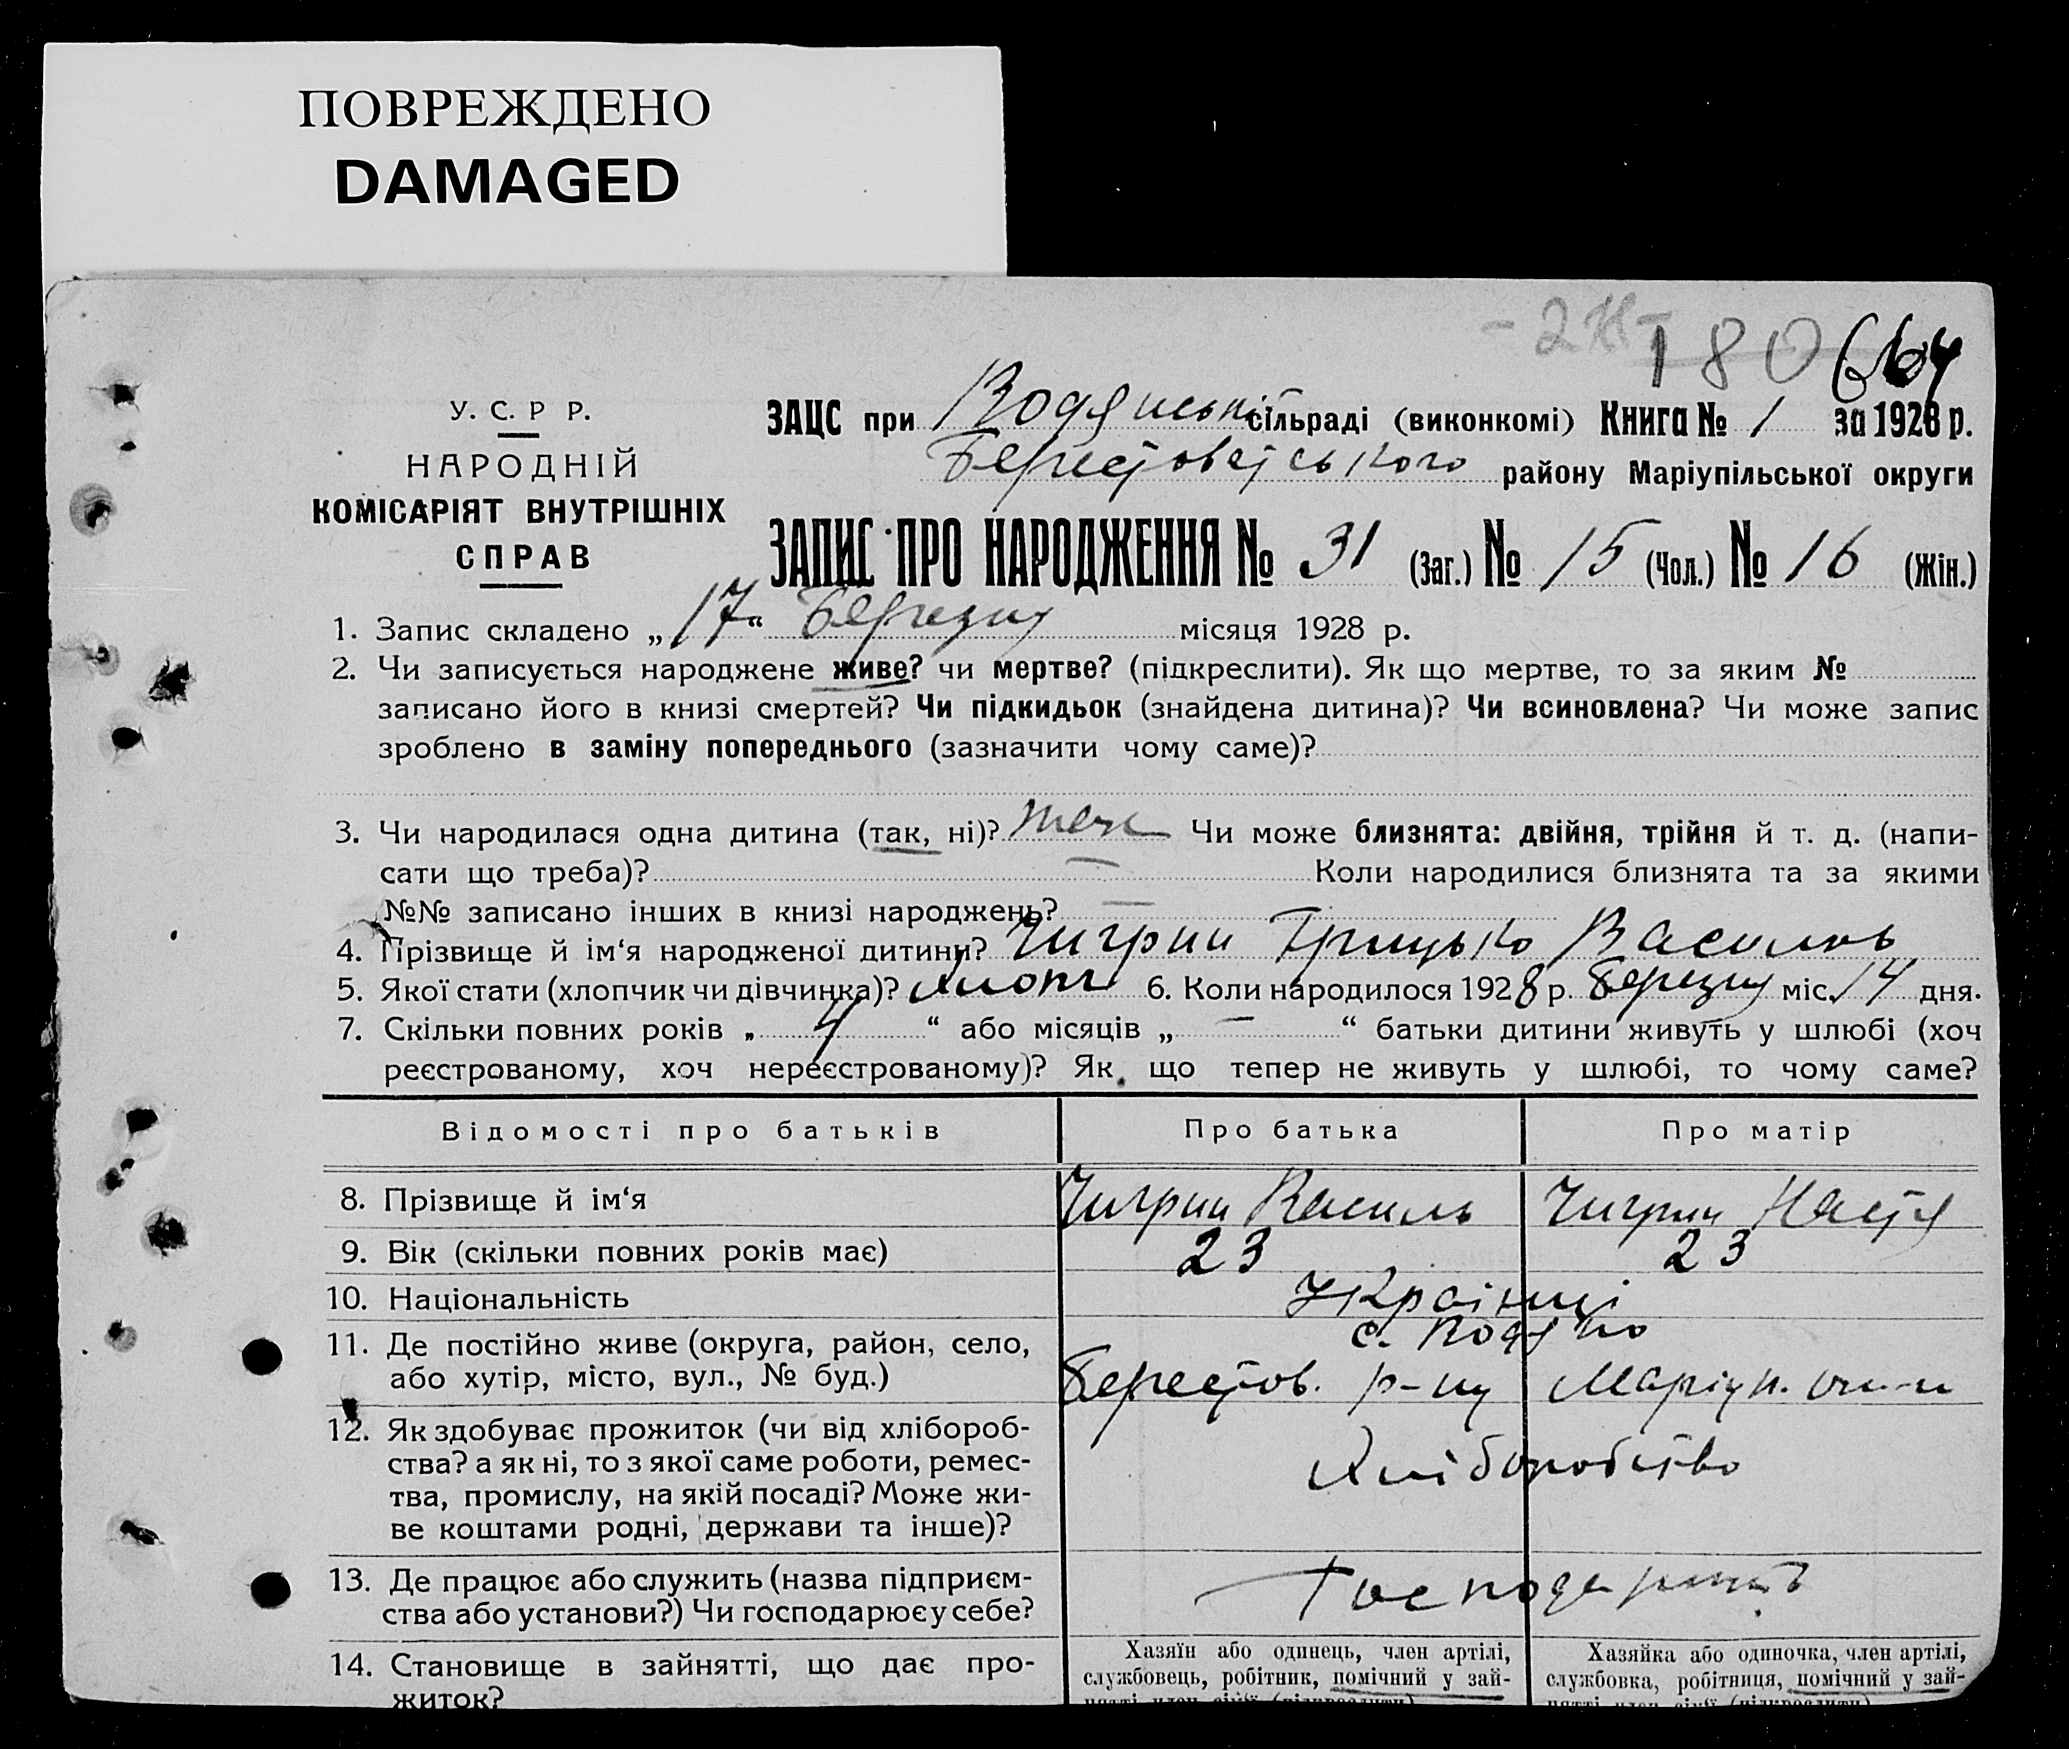 ПОВРЕЖДЕНО
DAMAGED
180 664
У. С. Р Р.
НАРОДНІЙ
КОМІСАРІЯТ ВНУТРІШНІХ
СПРАВ
ЗАЦС при Водянські сільраді (виконкомі) Книга № 1 за 1928 р.
Берестоветського району Маріупільської округи
ЗАПИС ПРО НАРОДЖЕННЯ № 31 (Заг.) № 15 (Чол.) № 16 (Жін.)
1. Запис складено „17“ Березня місяця 1928 р.
2. Чи записується народжене живе? чи мертве? (підкреслити). Як що мертве, то за яким №
записано його в книзі смертей? Чи підкидьок (знайдена дитина)? Чи всиновлена? Чи може запис
зроблено в заміну попереднього (зазначити чому саме)?
3. Чи народилася одна дитина (так, ні)? так Чи може близнята: двійня, трійня й т. д. (напи-
сати що треба)? — Коли народилися близнята та за якими
№№ записано інших в книзі народжень? —
4. Прізвище й ім‘я народженої дитини? Чигрин Грицько Василь
5. Якої стати (хлопчик чи дівчинка)? хлопч 6. Коли народилося 1928 р. Березня міс. 14 дня.
7. Скільки повних років „ 4 “ або місяців „ — “ батьки дитини живуть у шлюбі (хоч
реєстрованому, хоч нереєстрованому)? Як що тепер не живуть у шлюбі, то чому саме?
Відомості про батьків Про батька Про матір
8. Прізвище й ім‘я Чигрин Василь Чигрин Настя
9. Вік (скільки повних років має) 23 23
10. Національність Українці
11. Де постійно живе (округа, район, село, с. Водяно
або хутір, місто, вул., № буд.) Берестов. р-ну Маріуп.
12. Як здобуває прожиток (чи від хлібороб-
ства? а як ні, то з якої саме роботи, ремес- Хліборобство
тва, промислу, на якій посаді? Може жи-
ве коштами родні, держави та інше)?
13. Де працює або служить (назва підприєм-
ства або установи?) Чи господарює у себе?
14. Становище в зайнятті, що дає про- Хазяїн або одинець, член артілі, Хазяйка або одиночка, член артілі,
житок? службовець, робітник, помічний у зай- службовка, робітниця, помічний у зай-
нятті член сім'ї (підкреслити) нятті член сім'ї (підкреслити)